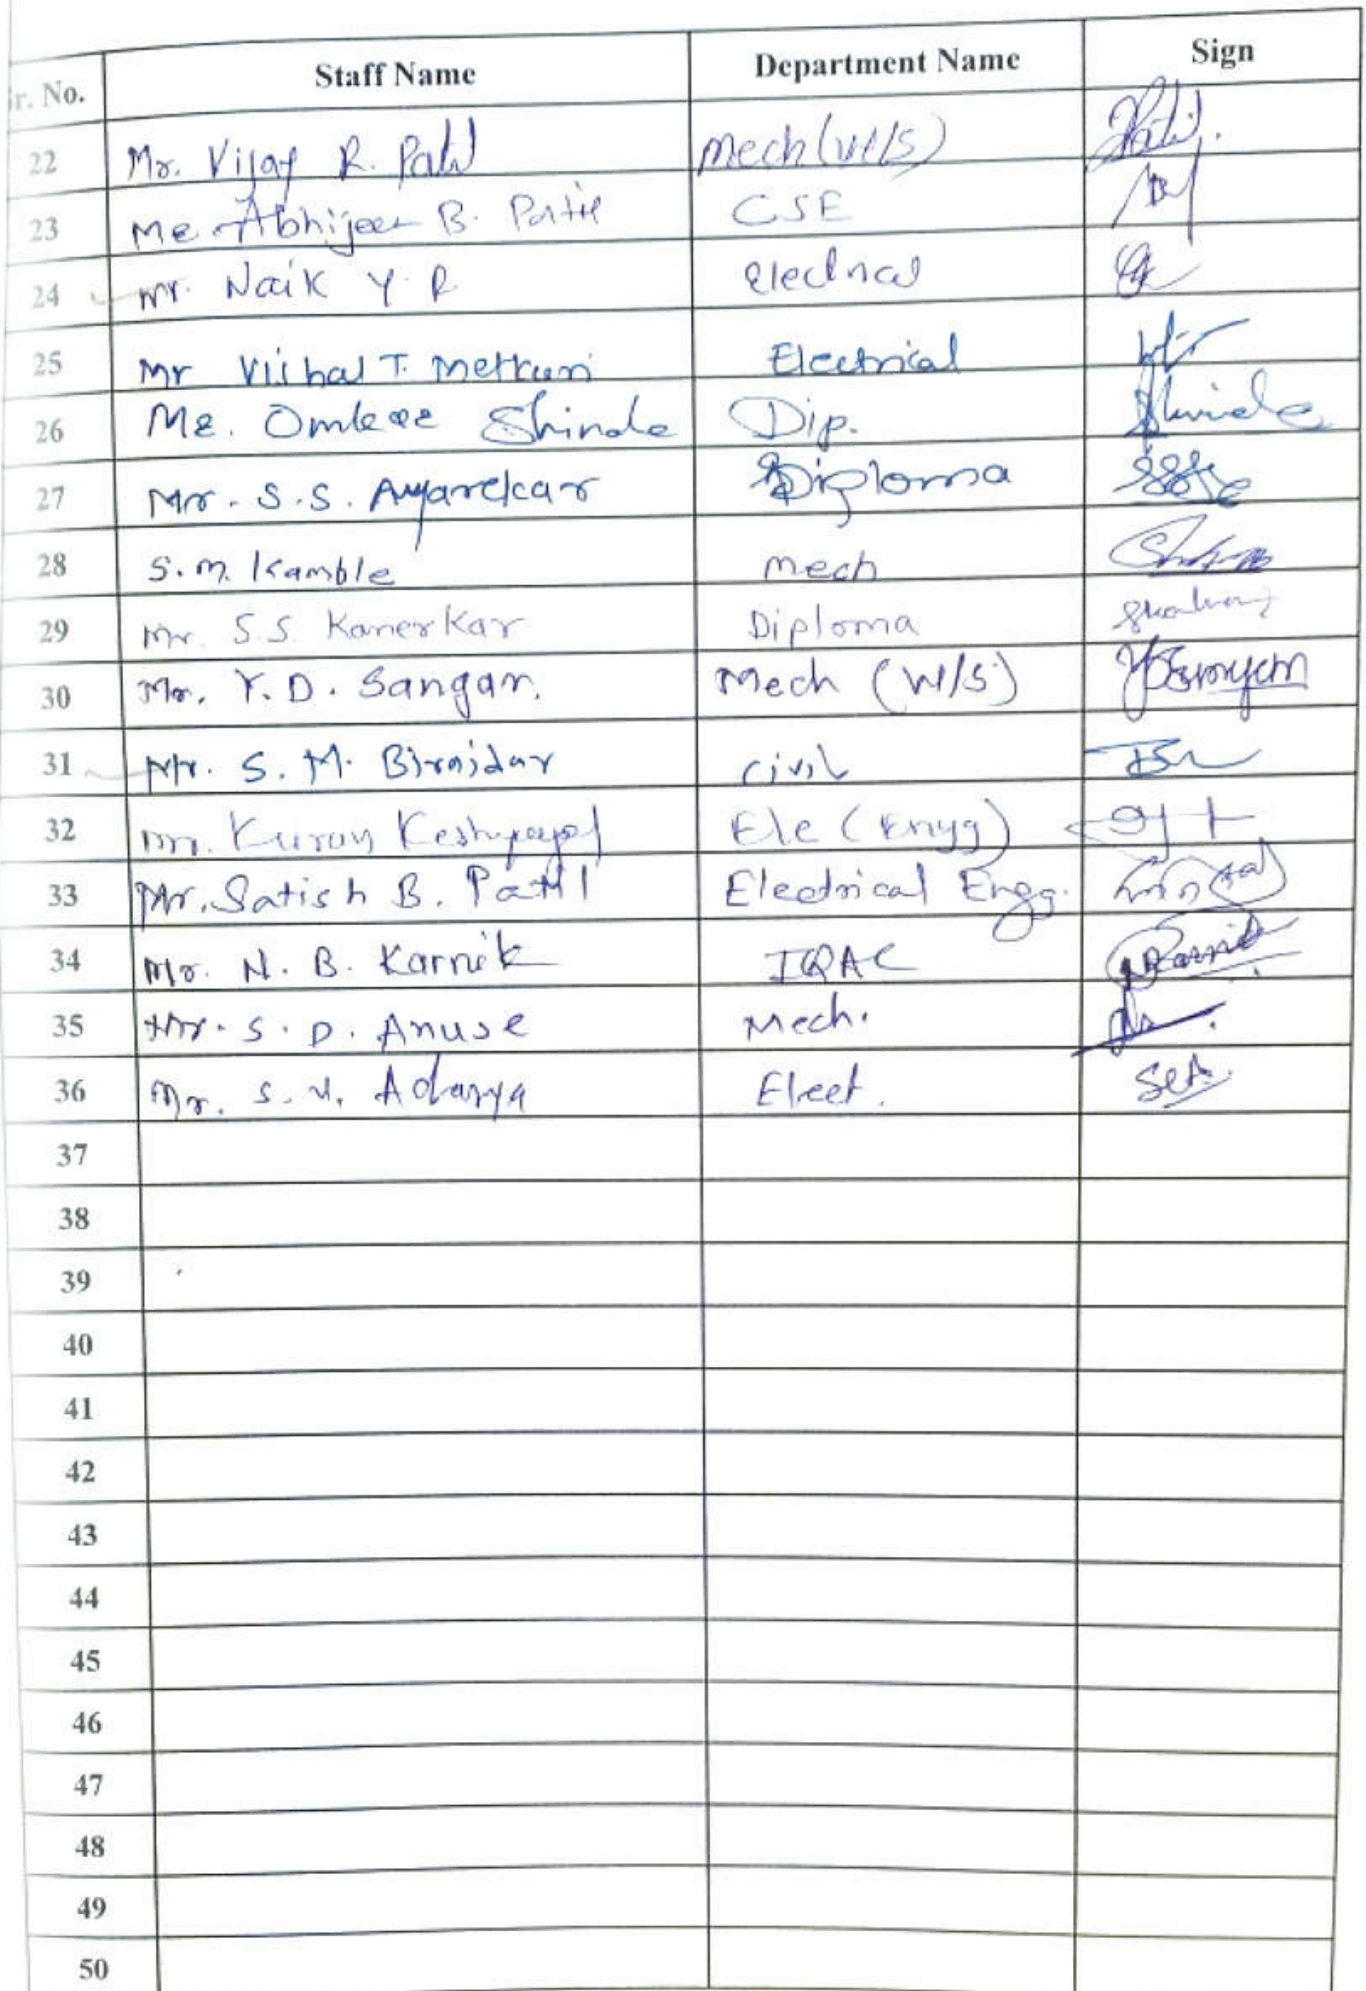 r. No. Staff Name Department Name Sign
22 Mr. Vijay R. Patil Mech (W/S) Patil.
23 Mr. Abhijeet B. Patil CSE
24 Mr. Naik Y. R Electrical
25 Mr Vithal T. Metkari Electrical
26 Mr. Omkar Shinde Dip. Shinde
27 Mr. S.S. Ayarekar Diploma
28 S.M. Kamble Mech
29 Mr. S.S. Kanerkar Diploma
30 Mr. Y.D. Sangar. Mech (W/S)
31 Mr. S. M. Birajdar Civil
32 Mr. Ele (Engg)
33 Mr. Satish B. Patil Electrical Engg.
34 Mr. N. B. Karnik IQAC Karnik
35 Mr. S. D. Anuse Mech.
36 Mr. S. V. Acharya Elect.
37
38
39
40
41
42
43
44
45
46
47
48
49
50